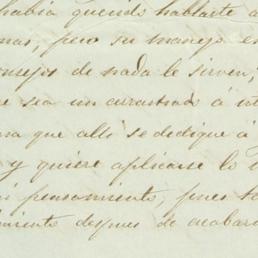 habia querido hablarte a
mas, pero su manejo en
nsejos de nada le sirven,
e sea un arrastrado á
na que alli se dedique á
y quiere aplicarse lo
i pensamiento, pues
miento despues de acabar